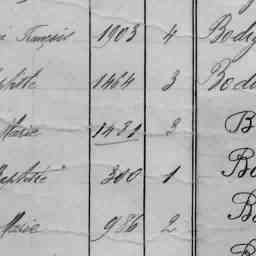 François 1903 4 Bod
1464 3 Bod
Marie 1431 3 B
Baptiste 300 1 B
Marie 986 2 B
B